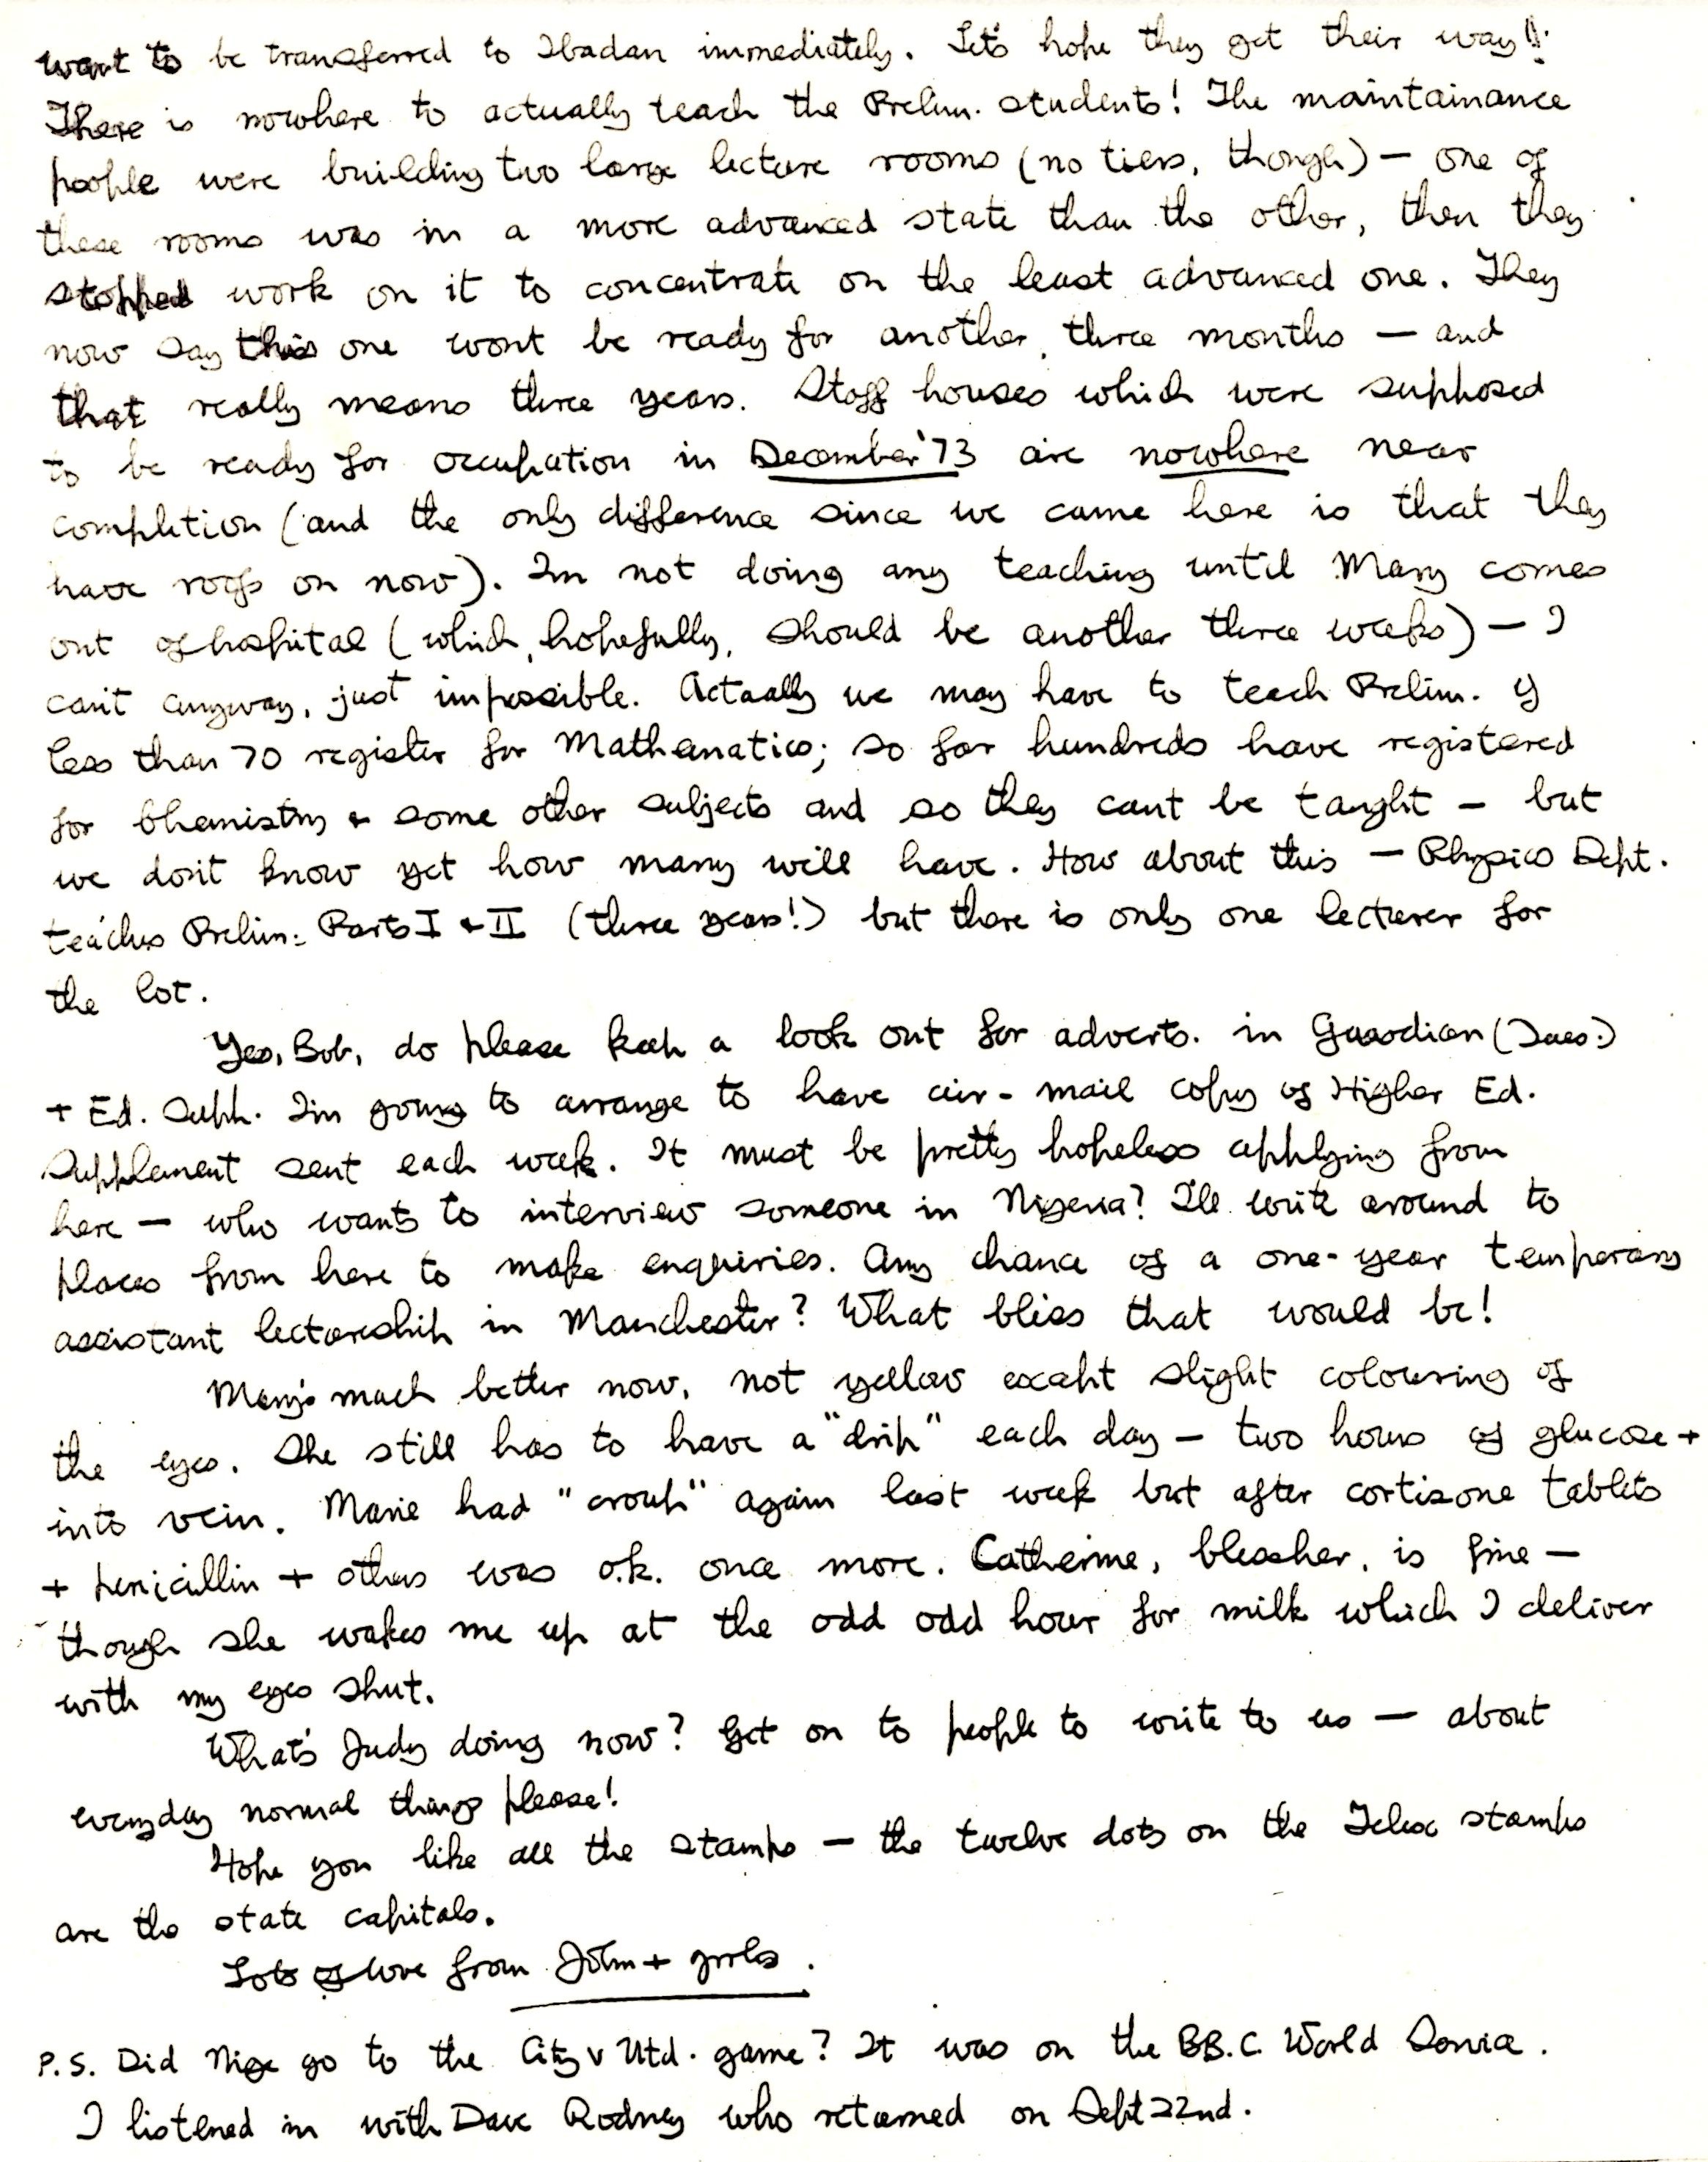 want to be transferred to Ibadan immediately. Let's hope they get their way!!
There is nowhere to actually teach the Prelim. students! The maintainance
people were building two large lecture rooms (no tiers, though) — one of
these rooms was in a more advanced state than the other, then they
stopped work on it to concentrate on the least advanced one. They
now say this one wont be ready for another, three months — and
that really means three years. Staff houses which were supposed
to be ready for occupation in December '73 are nowhere near
completion (and the only difference since we came here is that they
have roofs on now). Im not doing any teaching until Mary comes
out of hospital (which, hopefully, should be another three weeks) — I
can't anyway, just impossible. Actually we may have to teach Prelim. if
less than 70 register for Mathematics; so far hundreds have registered
for Chemistry + some other subjects and so they cant be taught — but
we don't know yet how many will have. How about this — Physics Dept.
teaches Prelim: Parts I + II (three years!) but there is only one lecturer for
the lot.
Yes, Bob, do please keep a look out for adverts. in Guardian (Tues.)
+ Ed. Supp. I'm going to arrange to have air-mail copy of Higher Ed.
Supplement sent each week. It must be pretty hopeless applying from
here — who wants to interview someone in Nigeria? I'll write around to
places from here to make enquiries. Any chance of a one-year temporary
assistant lectureship in Manchester? What bliss that would be!
Mary's much better now, not yellow except slight colouring of
the eyes. She still has to have a "drip" each day — two hours of glucose +
into vein. Marie had "croup" again last week but after cortizone tablets
+ penicillin + others was o.k. once more. Catherine, bless her, is fine —
though she wakes me up at the odd odd hour for milk which I deliver
with my eyes shut.
What's Judy doing now? Get on to people to write to us — about
everyday normal things please!
Hope you like all the stamps — the twelve dots on the Telex stamps
are the state capitals.
Lots of love from John + girls.
P.S. Did Nige go to the City v Utd. game? It was on the B.B.C. World Service.
I listened in with Dave Rodney who returned on Sept 22nd.